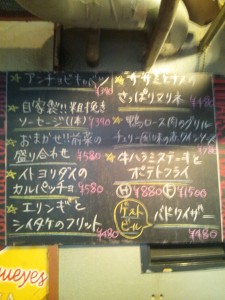 アンチョビキャベツ
¥390
★自家製!!粗挽き
ソーセージ(1本)¥390
★おまかせ!!前菜の
盛り合わせ ¥580
★イトヨリダイの
カルパッチョ ¥580
★エリンギと
シイタケのフリット
¥480
★ササミとナスの
さっぱりマリネ
¥480
★鴨ロース肉のグリル
チェリー風味の赤ワインソース
★牛ハラミステーキと
ポテトフライ
Ⓗ¥880 Ⓕ¥1500
ゲスト
ビール
バドワイザー
¥480
ueyes